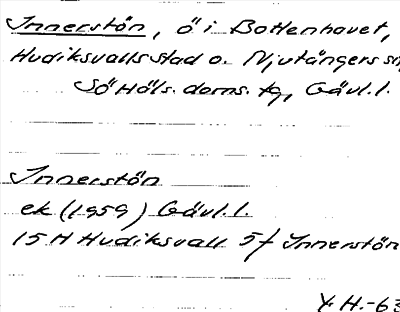 Innerstön, ö i Bottenhavet,
Hudiksvalls stad o. Njutångers sn,
Sö Häls. doms. tg, Gävl.l.
Innerstön
ek (1959) Gävl.l.
15 H Hudiksvall 5f Innerstön
Y.H.-63